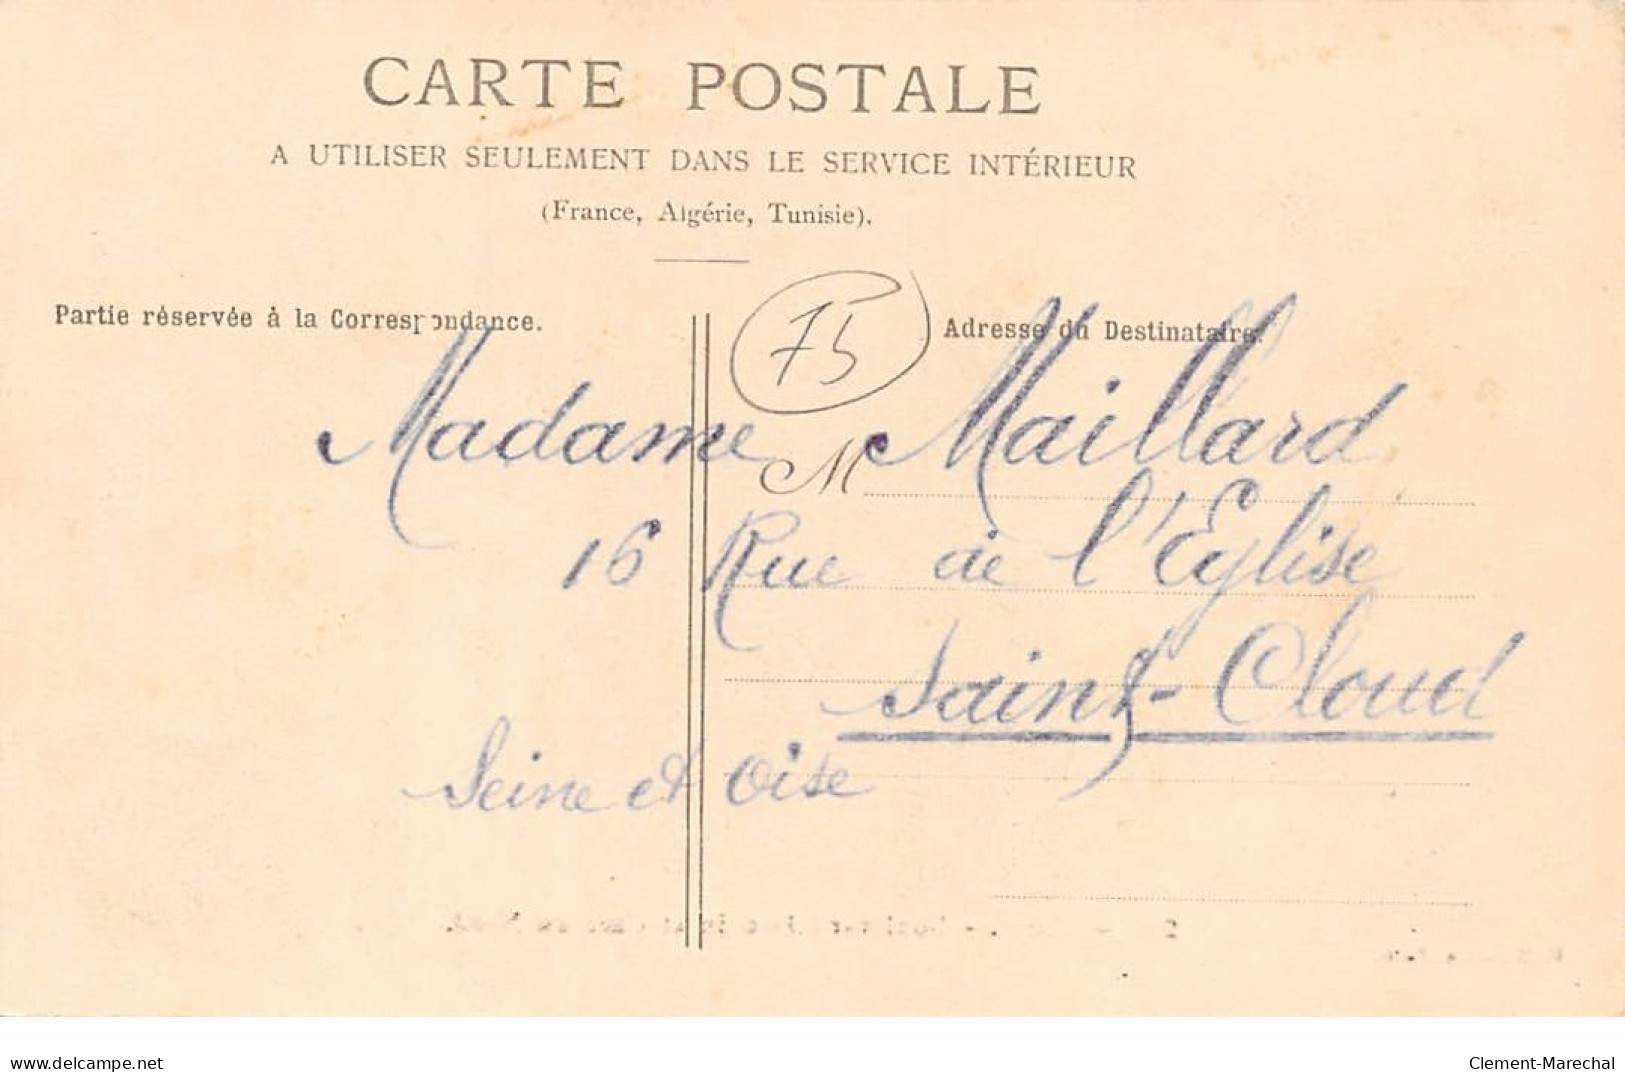 CARTE POSTALE
A UTILISER SEULEMENT DANS LE SERVICE INTÉRIEUR
(France, Algérie, Tunisie).
Partie réservée à la Correspondance.
75
Adresse du Destinataire.
Madame M Maillard
16 Rue de l'Eglise
Saint-Cloud
Seine et Oise
www.delcampe.net
Clement-Marechal